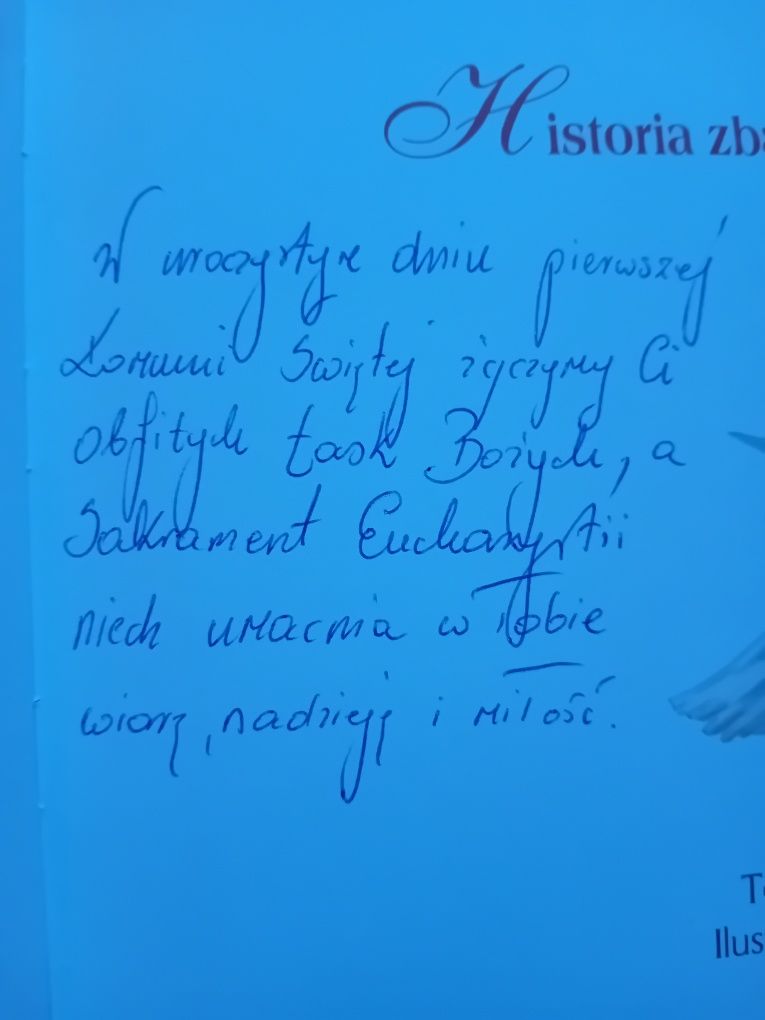 Historia zba
W uroczystym dniu pierwszej
Komunii Świętej życzymy Ci
obfitych łask Bożych, a
Sakrament Eucharystii
niech umacnia w Tobie
wiarę, nadzieję i miłość.
T
Ilus